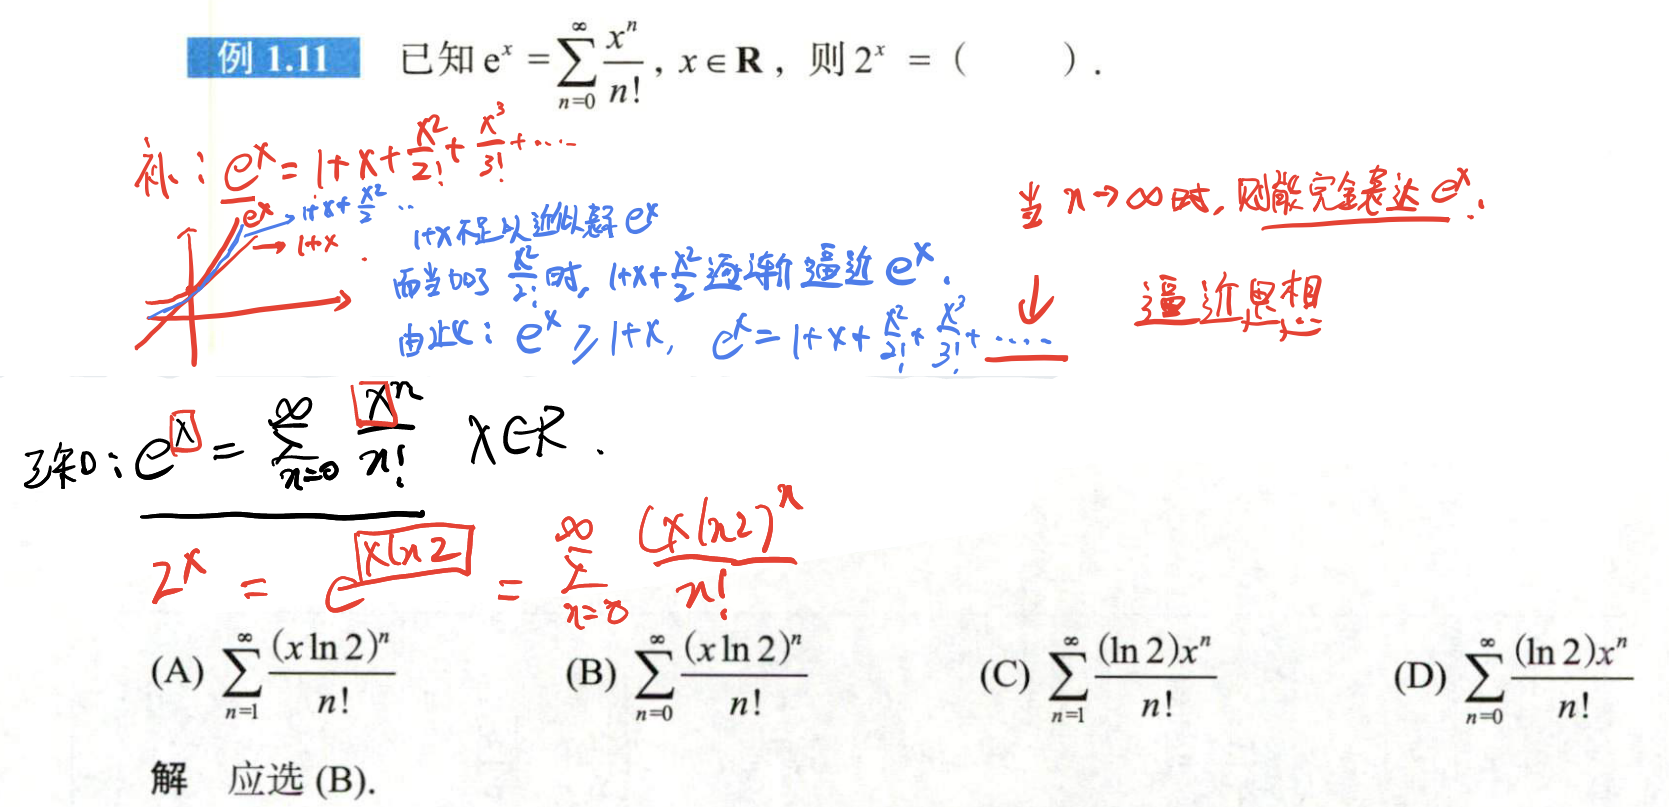 例 1.11 已知 eˣ = ∑_{n=0}^{∞} xⁿ/n! , x ∈ R , 则 2ˣ = ( ) .
补: eˣ = 1+x+x²/2!+x³/3!+....
eˣ
1+x+x²/2 ..
1+x
1+x不足以近似 eˣ
而当加了 x²/2! 时, 1+x+x²/2 逐渐逼近 eˣ.
由此: eˣ ≥ 1+x, eˣ = 1+x+x²/2!+x³/3!+.....
当 n→∞时, 则能完全表达 eˣ.
↓ 逼近思想
已知: eˣ = ∑_{n=0}^{∞} xⁿ/n! x∈R .
2ˣ = e^{xln2} = ∑_{n=0}^{∞} (xln2)ⁿ/n!
(A) ∑_{n=1}^{∞} (x ln 2)ⁿ/n! (B) ∑_{n=0}^{∞} (x ln 2)ⁿ/n! (C) ∑_{n=1}^{∞} (ln 2)xⁿ/n! (D) ∑_{n=0}^{∞} (ln 2)xⁿ/n!
解 应选 (B).